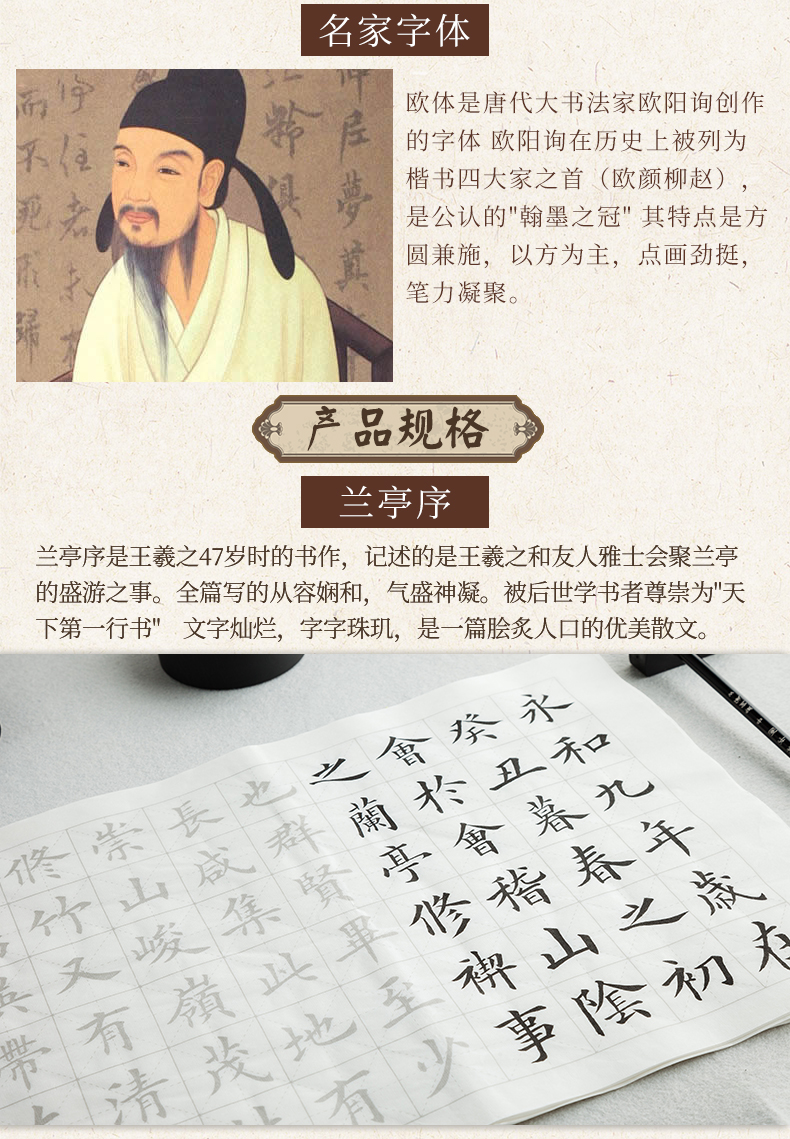 名家字体
仲尼夢奠
欧体是唐代大书法家欧阳询创作
的字体 欧阳询在历史上被列为
楷书四大家之首（欧颜柳赵），
是公认的"翰墨之冠" 其特点是方
圆兼施，以方为主，点画劲挺，
笔力凝聚。
产品规格
兰亭序
兰亭序是王羲之47岁时的书作，记述的是王羲之和友人雅士会聚兰亭
的盛游之事。全篇写的从容娴和，气盛神凝。被后世学书者尊崇为"天
下第一行书"　文字灿烂，字字珠玑，是一篇脍炙人口的优美散文。
永和九年歲在
癸丑暮春之初
會於會稽山陰
之蘭亭修禊事
也群賢畢至少
長咸集此地有
崇山峻嶺茂
修竹又有清
帶